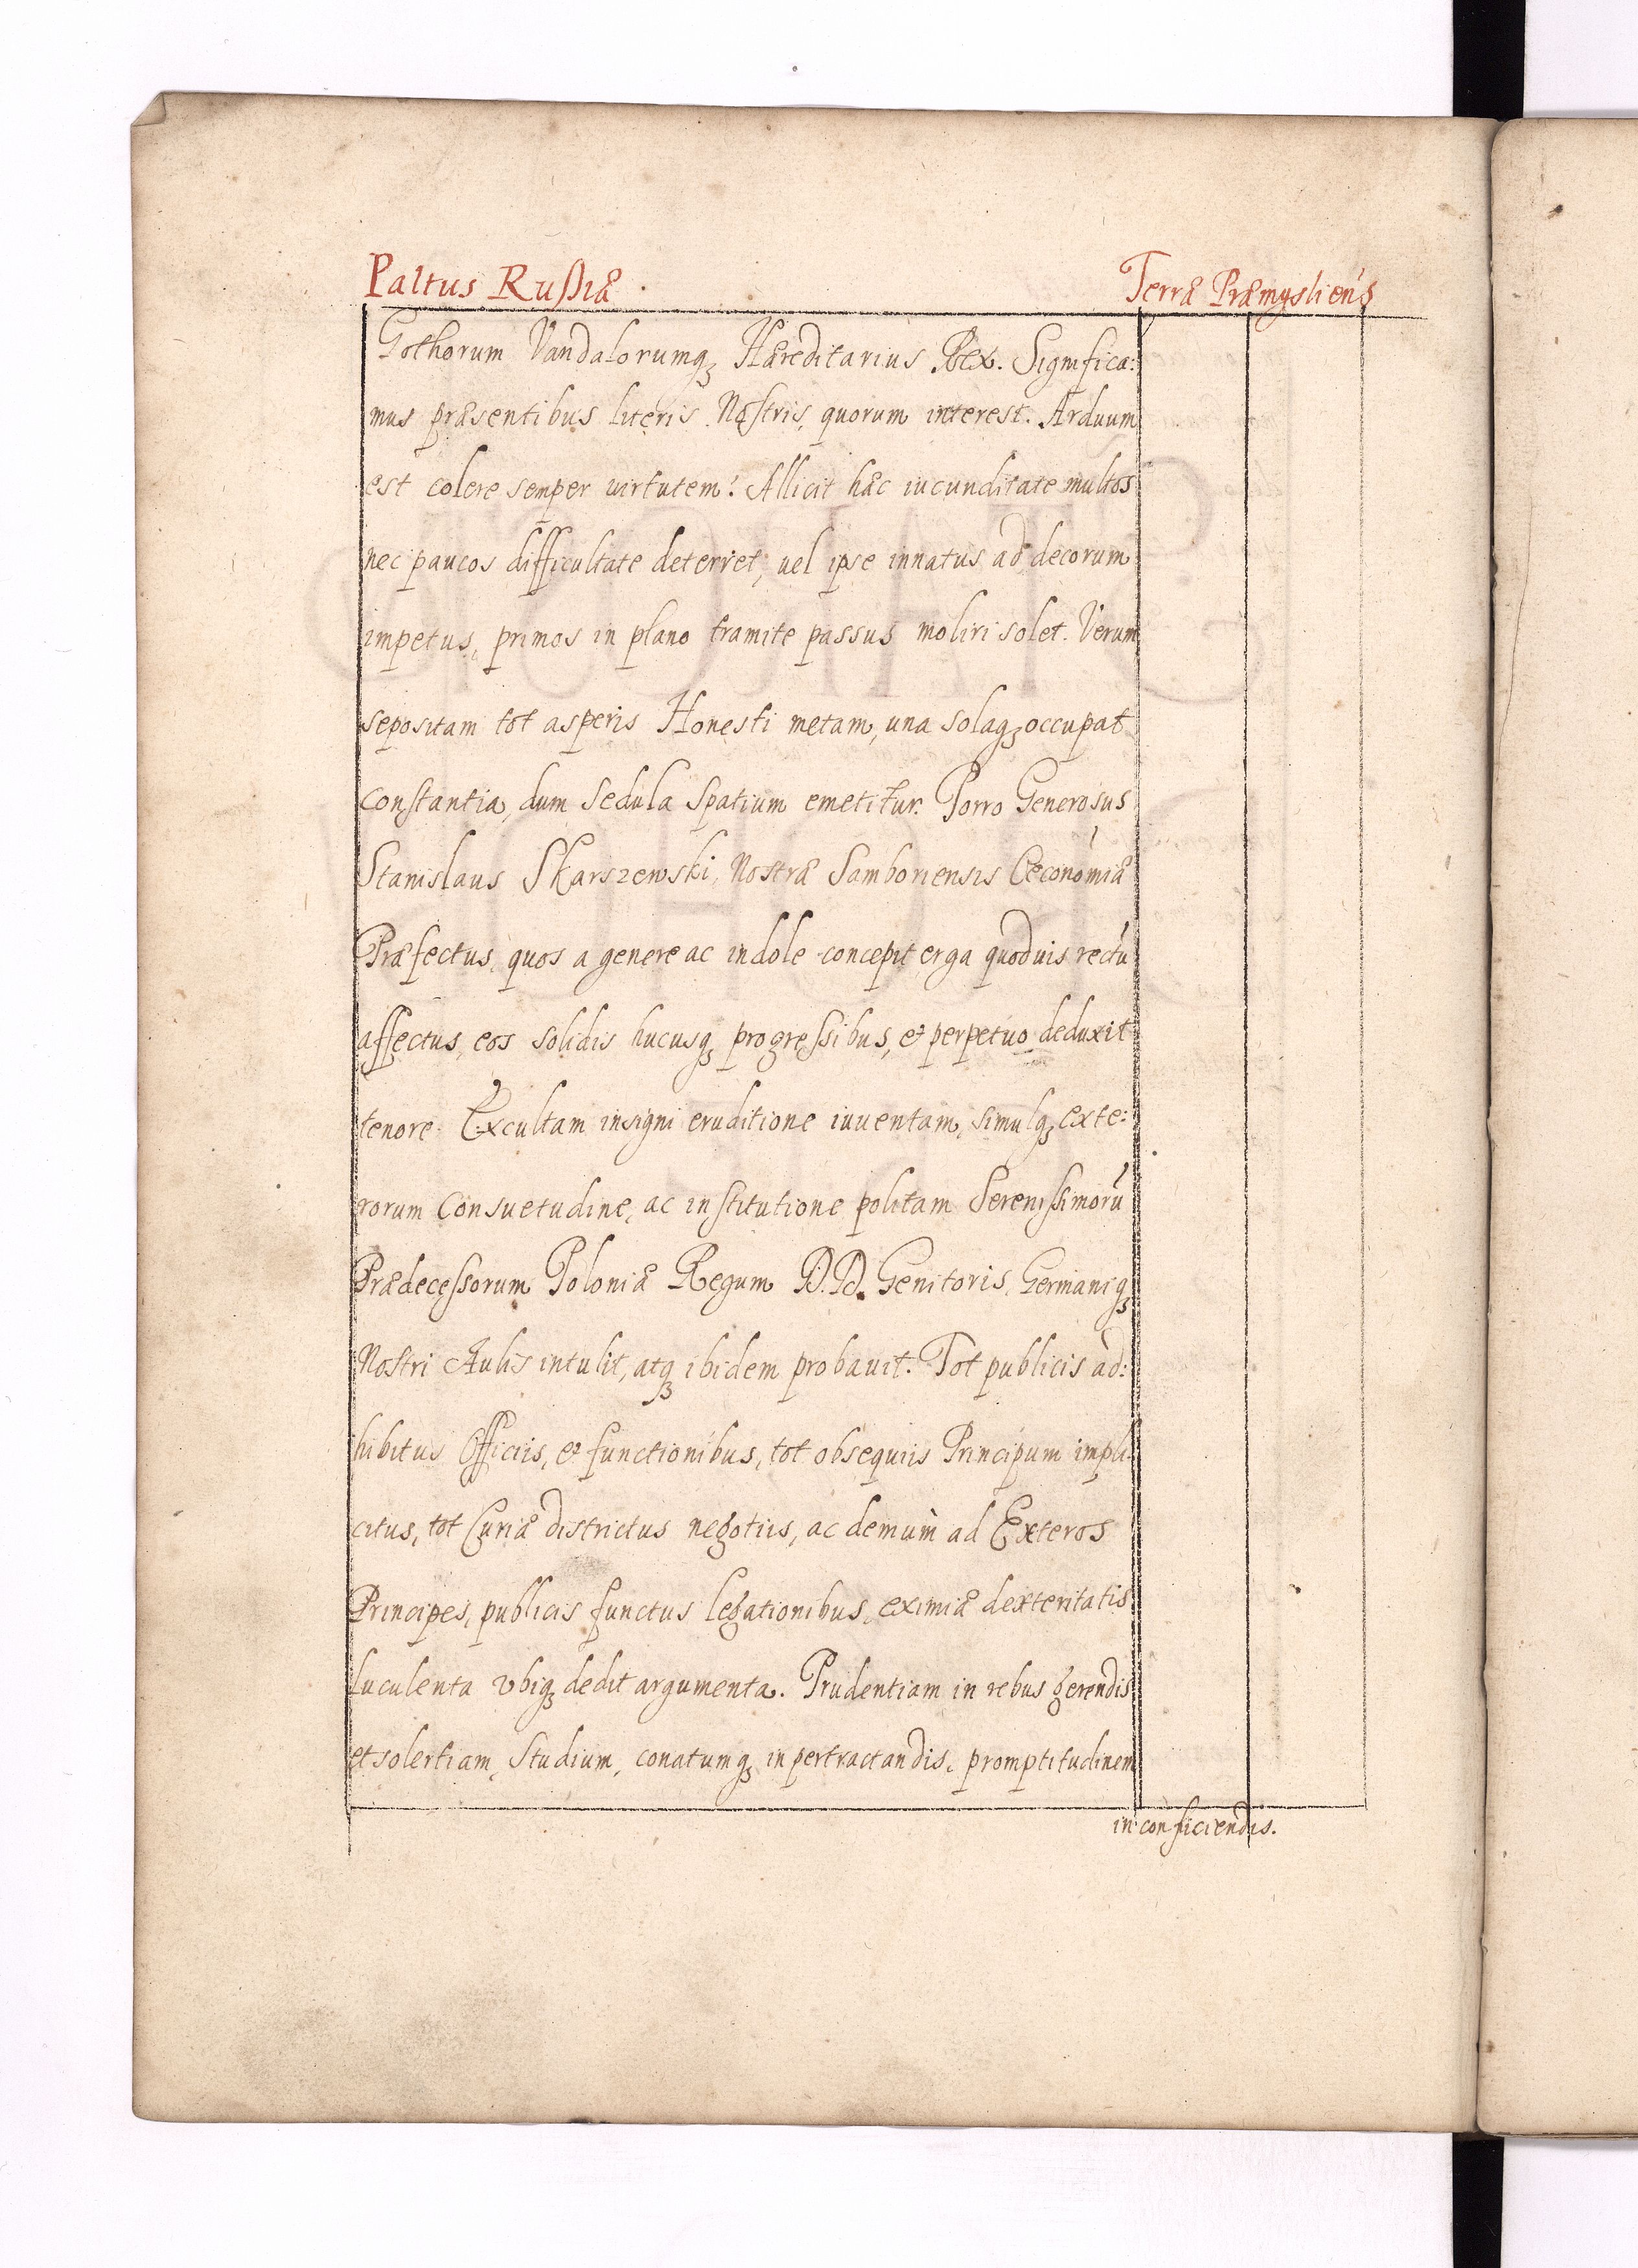 Paltus Rußiæ
Terræ Præmysliens̃
Gothorum Vandalorumqꝫ Hæreditarius Rex. Significa:
mus præsentibus literis Nostris, quorum interest. Arduum
est colere semper uirtutem: Allicit hæc iucunditate multos
nec paucos difficultate deterret, uel ipse innatus ad decorum
impetus, primos in plano tramite passus moliri solet. Verum
sepositam tot asperis Honesti metam, una solaqꝫ occupat
constantia, dum sedula spatium emetitur. Porro Generosus
Stanislaus Skarszewski, Nostræ Samboriensis Oeconomiæ
Præfectus, quos a genere ac indole concepit erga quoduis rectũ
affectus, eos solidis hucusqꝫ progreſsibus, et perpetuo deduxit
tenore. Excultam insigni eruditione iuuentam, simulqꝫ exte:
rorum consuetudine, ac institutione politam Sereniſsimorũ
Prædeceſsorum Poloniæ Regum D.D. Genitoris, Germaniqꝫ
Nostri Aulis intulit, atqꝫ ibidem probauit. Tot publicis ad:
hibitus Officiis, et functionibus, tot obsequiis Principum impli:
citus, tot Curiæ districtus negotiis, ac demum ad Exteros
Principes, publicis functus legationibus, eximiæ dexteritatis
luculenta vbiqꝫ dedit argumenta. Prudentiam in rebus gerendis
et solertiam, studium, conatumqꝫ in pertractandis, promptitudinem
in conficiendis.